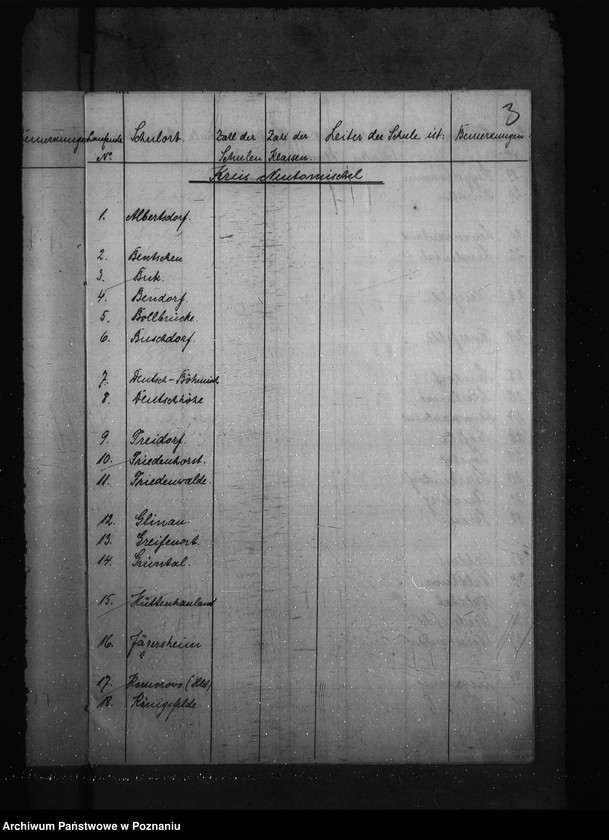 3
Bemerkungen Laufende Schulort. Zahl der Zahl der Leiter der Schule ist: Bemerkungen
No. Schulen Klassen.
Kreis Neutomischel
1. Albertsdorf.
2. Bentschen
3. Buk.
4. Bendorf.
5. Bollbrücke.
6. Buschdorf.
7. Deutsch-Böhmisch
8. Deutschhöhe
9. Freidorf.
10. Friedenhorst.
11. Friedenwalde.
12. Glinau.
13. Greifenort.
14. Grüntal.
15. Hüttenhauland
16. Jägersheim
17. Komorowo (Hld)
18. Königsfelde
Archiwum Państwowe w Poznaniu